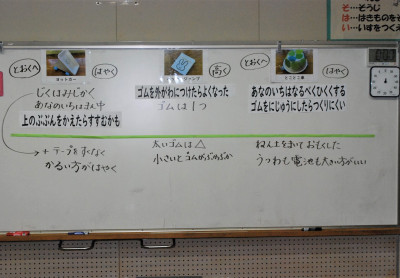 そ…そうじ
は…はきものをそ
い…いすをつくえ
とおくへ
はやく
じくはみじかく
あなのいちはまん中
上のぶぶんをかえたらすすむかも
+テープをすくなく
かるい方がはやく
高く
ゴムを外がわにつけたらよくなった
ゴムは1つ
太いゴムは△
小さいとゴムが
とおくへ
はやく
あなのいちはなるべくひくくする
ゴムをにじゅうにしたらつくりにくい
ねん土をまいておもくした
うつわも電池も大きい方がいい